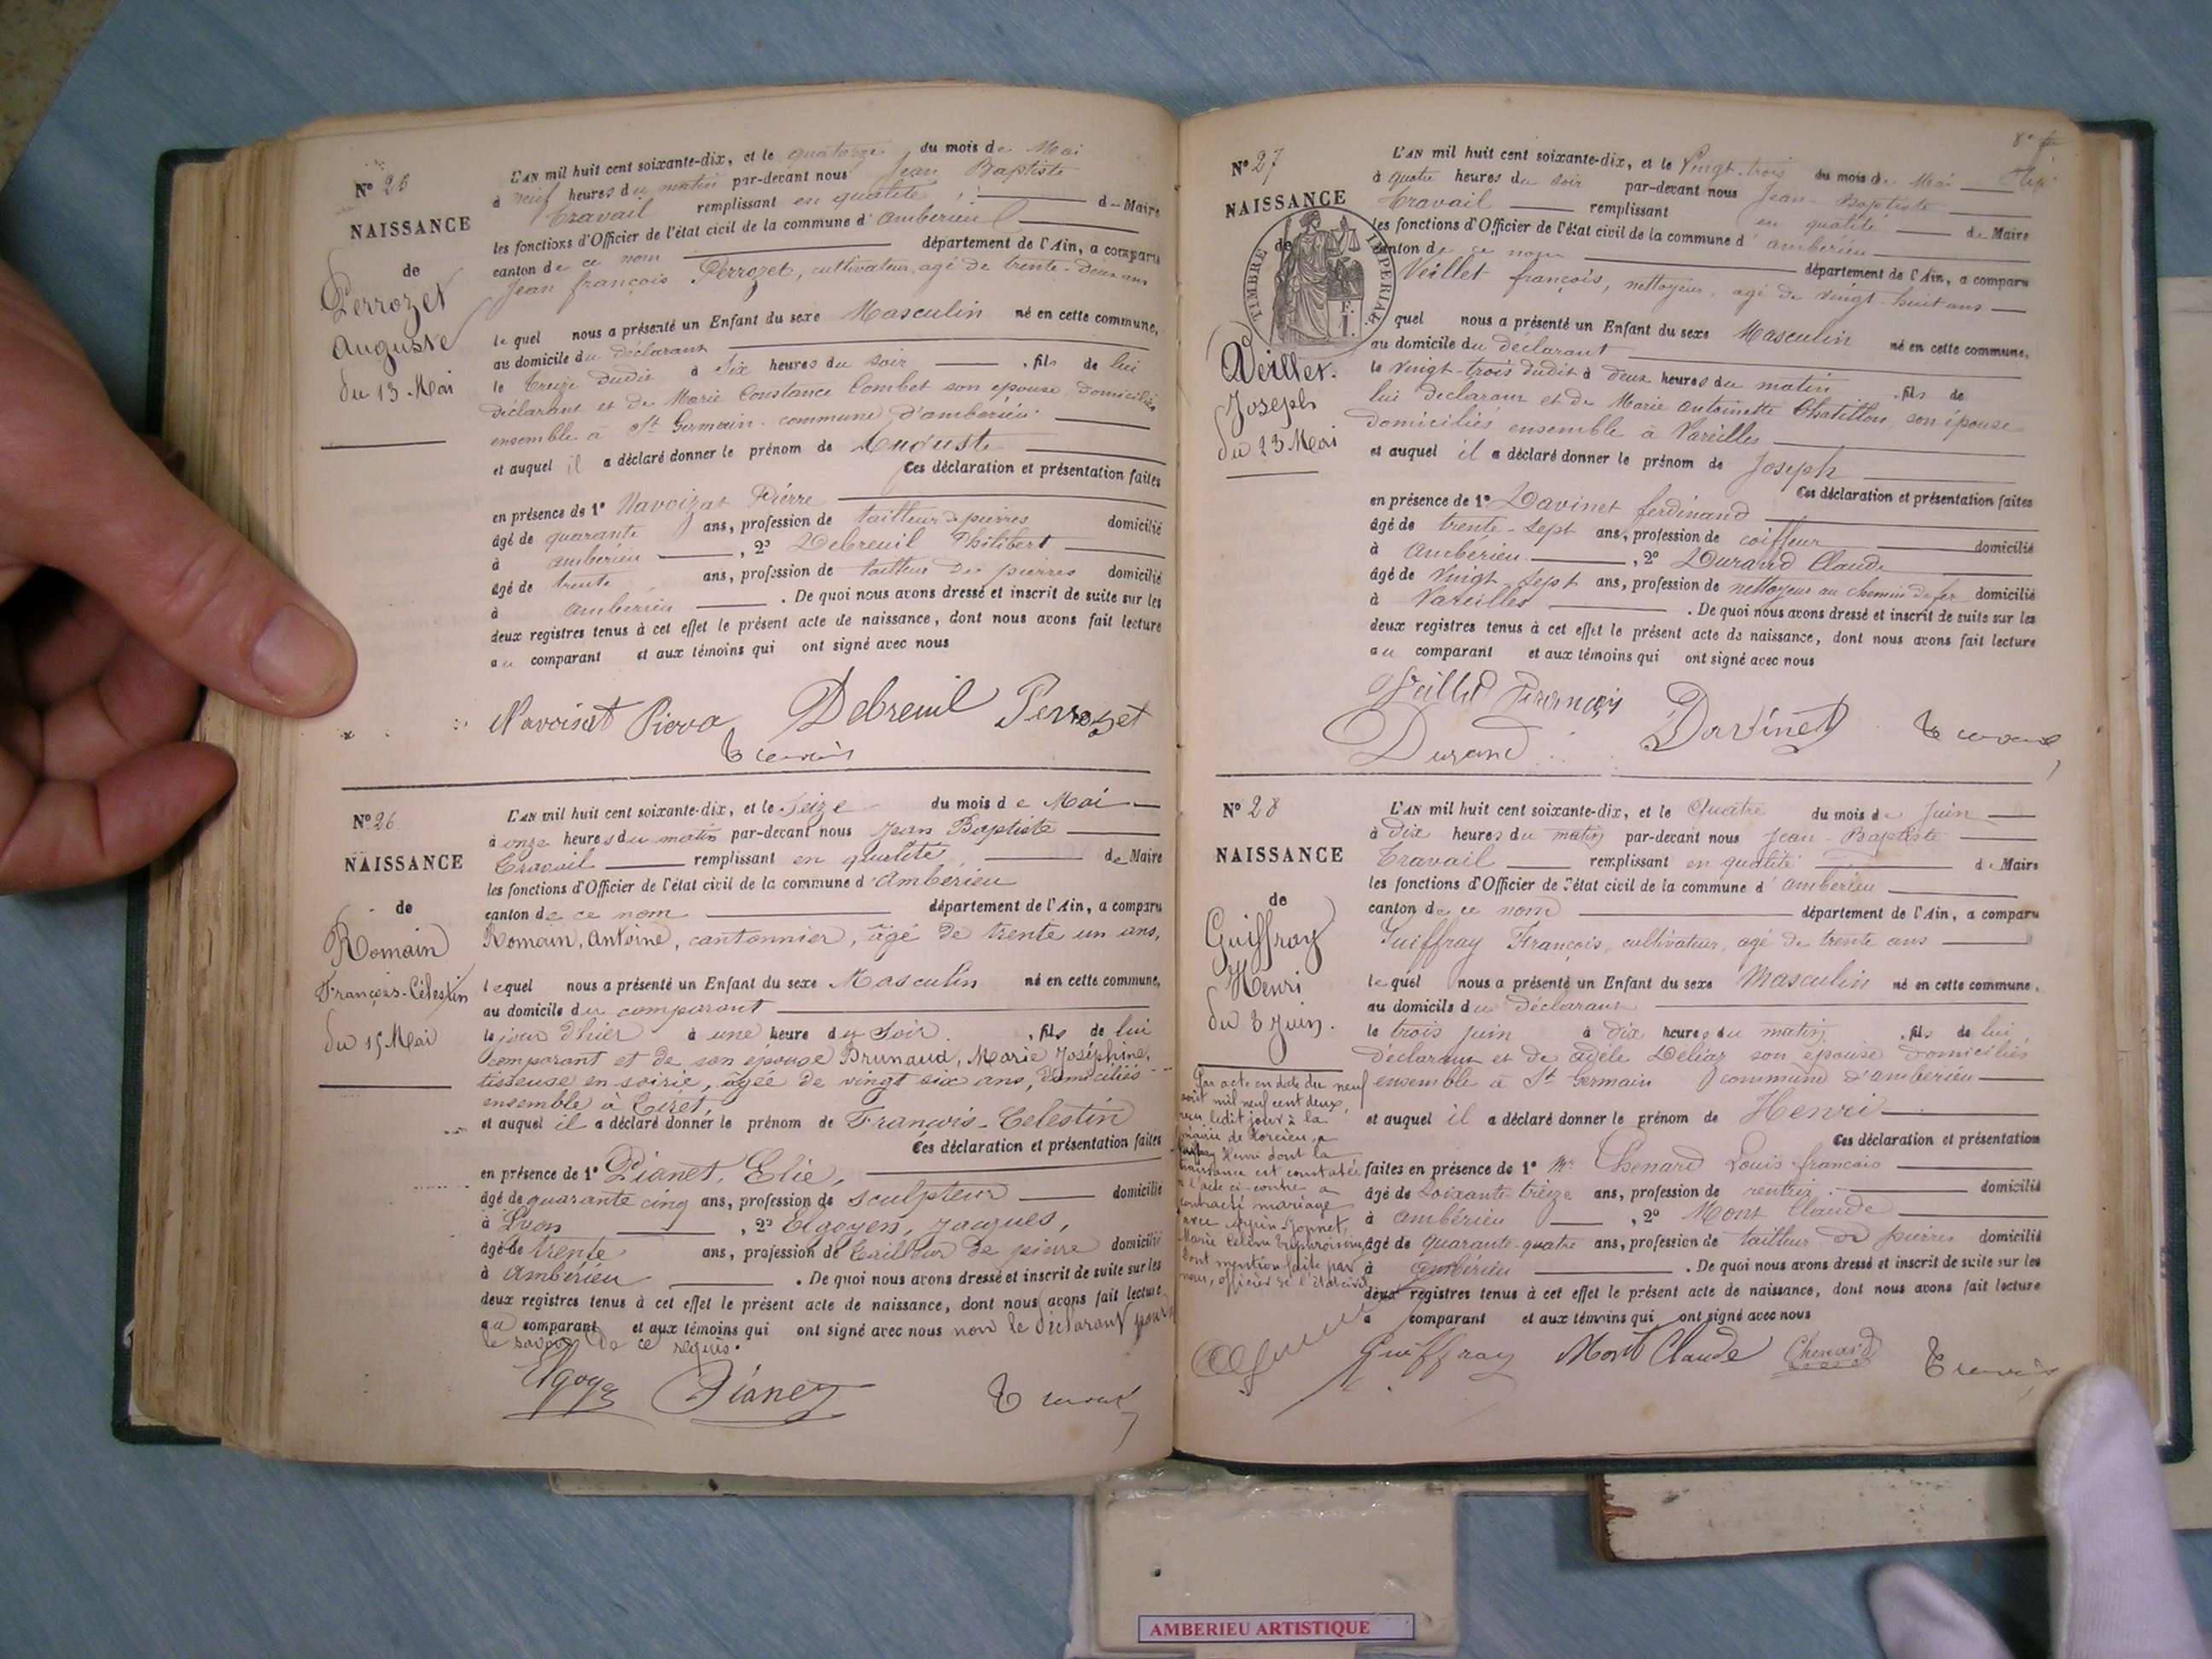 N° 25
NAISSANCE
de
Perrozet
Auguste
du 13 Mai
L'AN mil huit cent soixante-dix, et le quatorze du mois de Mai
à neuf heures du matin par-devant nous Jean Baptiste
Travail remplissant en qualité de Maire
les fonctions d'Officier de l'état civil de la commune d'Amberieu
canton de ce nom département de l'Ain, a comparu
Jean françois Perrozet, cultivateur, agé de trente-deux ans
le quel nous a présenté un Enfant du sexe Masculin né en cette commune,
au domicile du déclarant
le treize dudit à Six heures du soir , fils de lui
déclarant et de Marie Constance Combet son epouse domiciliés
ensemble à St Germain commune d'amberieu
et auquel il a déclaré donner le prénom de Auguste
Ces déclaration et présentation faites
en présence de 1° Navoizat Pierre
âgé de quarante ans, profession de tailleur de pierres domicilié
à amberieu , 2° Debreuil Philibert
âgé de trente ans, profession de tailleur de pierres domicilié
à amberieu . De quoi nous avons dressé et inscrit de suite sur les
deux registres tenus à cet effet le présent acte de naissance, dont nous avons fait lecture
au comparant et aux témoins qui ont signé avec nous
Navoisat Debreuil Perrozet
N° 26
NAISSANCE
de
Romain
François-Célestin
du 15 Mai
L'AN mil huit cent soixante-dix, et le Seize du mois de Mai
à onze heures du matin par-devant nous Jean Baptiste
Travail remplissant en qualité de Maire
les fonctions d'Officier de l'état civil de la commune d'Amberieu
canton de ce nom département de l'Ain, a comparu
Romain, Antoine, cantonnier, âgé de trente un ans,
lequel nous a présenté un Enfant du sexe Masculin né en cette commune,
au domicile du comparant
le jour d'hier à une heure du Soir , fils de lui
comparant et de son épouse Brunaud, Marie Joséphine,
tisseuse en soirie, âgée de vingt six ans, domiciliés
ensemble à Tiret,
et auquel il a déclaré donner le prénom de François-Celestin
Ces déclaration et présentation faites
en présence de 1° Pianet, Elie,
âgé de quarante cinq ans, profession de sculpteur domicilié
à Lyon , 2° Elgoyen, Jacques,
âgé de trente ans, profession de tailleur de pierre domicilié
à Ambérieu . De quoi nous avons dressé et inscrit de suite sur les
deux registres tenus à cet effet le présent acte de naissance, dont nous avons fait lecture
au comparant et aux témoins qui ont signé avec nous non le déclarant pour
le savoir de ce requis.
Pianet
N° 27
NAISSANCE
de
TIMBRE IMPERIAL
Veillet.
Joseph
du 23 Mai
L'AN mil huit cent soixante-dix, et le Vingt-trois du mois de Mai
à quatre heures du soir par-devant nous Jean-Baptiste
Travail remplissant en qualité de Maire
les fonctions d'Officier de l'état civil de la commune d'amberieu
canton de ce nom département de l'Ain, a comparu
Veillet françois, nettoyeur, agé de vingt-huit ans
quel nous a présenté un Enfant du sexe Masculin né en cette commune,
au domicile du déclarant
le vingt-trois dudit à deux heures du matin , fils de
lui déclarant et de Marie Antoinette Chatillon, son épouse
domiciliés ensemble à Vareilles
et auquel il a déclaré donner le prénom de Joseph
Ces déclaration et présentation faites
en présence de 1° Davinet ferdinand
âgé de trente-sept ans, profession de coiffeur domicilié
à Amberieu , 2° Durand Claude
âgé de Vingt sept ans, profession de nettoyeur au chemin de fer domicilié
à Vareilles . De quoi nous avons dressé et inscrit de suite sur les
deux registres tenus à cet effet le présent acte de naissance, dont nous avons fait lecture
au comparant et aux témoins qui ont signé avec nous
Veillet François
Durand Davinet
N° 28
NAISSANCE
de
Guiffray
Henri
du 3 Juin.
L'AN mil huit cent soixante-dix, et le Quatre du mois de Juin
à Dix heures du matin par-devant nous Jean-Baptiste
Travail remplissant en qualité de Maire
les fonctions d'Officier de l'état civil de la commune d'amberieu
canton de ce nom département de l'Ain, a comparu
Guiffray François, cultivateur, agé de trente ans
lequel nous a présenté un Enfant du sexe Masculin né en cette commune,
au domicile du déclarant
le trois juin à dix heures du matin , fils de lui
déclarant et de adèle Déliaz son épouse domiciliés
ensemble à St Germain commune d'amberieu
et auquel il a déclaré donner le prénom de Henri
Ces déclaration et présentation
faites en présence de 1° Mr Chenard Louis françois
âgé de Soixante-treize ans, profession de rentier domicilié
à ambérieu , 2° Mont Claude
âgé de quarante-quatre ans, profession de tailleur de pierres domicilié
à ambérieu . De quoi nous avons dressé et inscrit de suite sur les
deux registres tenus à cet effet le présent acte de naissance, dont nous avons fait lecture
a comparant et aux témoins qui ont signé avec nous
Guiffray Mont Claude Chenard
Par acte en date du neuf
août mil neuf cent deux,
reçu ledit jour à la
mairie de
Henri dont la
naissance est constatée
à l'acte ci-contre a
contracté mariage
avec
Marie
dont mention faite par
nous, officier de l'état civil
AMBERIEU ARTISTIQUE